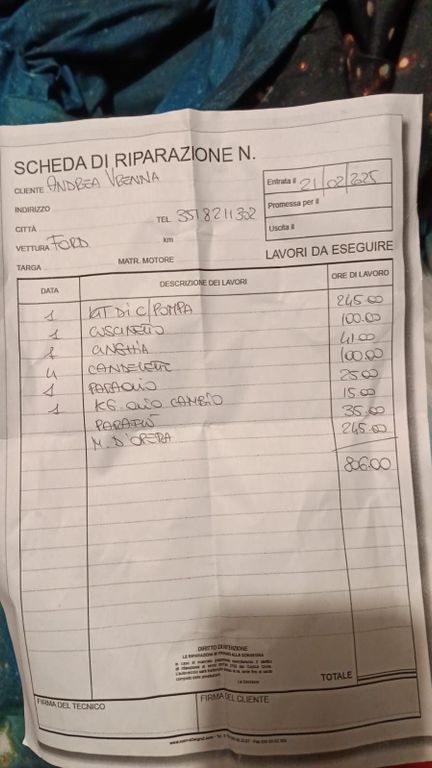 SCHEDA DI RIPARAZIONE N.
CLIENTE ANDREA VRENNA
Entrata il 21/02/2025
INDIRIZZO
Promessa per il
CITTÀ TEL. 3518211302
Uscita il
VETTURA FORD km
TARGA MATR. MOTORE LAVORI DA ESEGUIRE
DATA DESCRIZIONE DEI LAVORI ORE DI LAVORO
1 KIT DI C/POMPA 245.00
1 CUSCINETTO 100.00
1 CINGHIA 41.00
4 CANDELETTE 100.00
1 PARAOLIO 25.00
1 KG. OLIO CAMBIO 15.00
PARAFLÙ 35.00
M. D'OPERA 245.00
806.00
DIRITTO DI RITENZIONE
LE RIPARAZIONI SI PAGANO ALLA CONSEGNA
La Direzione
TOTALE
FIRMA DEL TECNICO FIRMA DEL CLIENTE